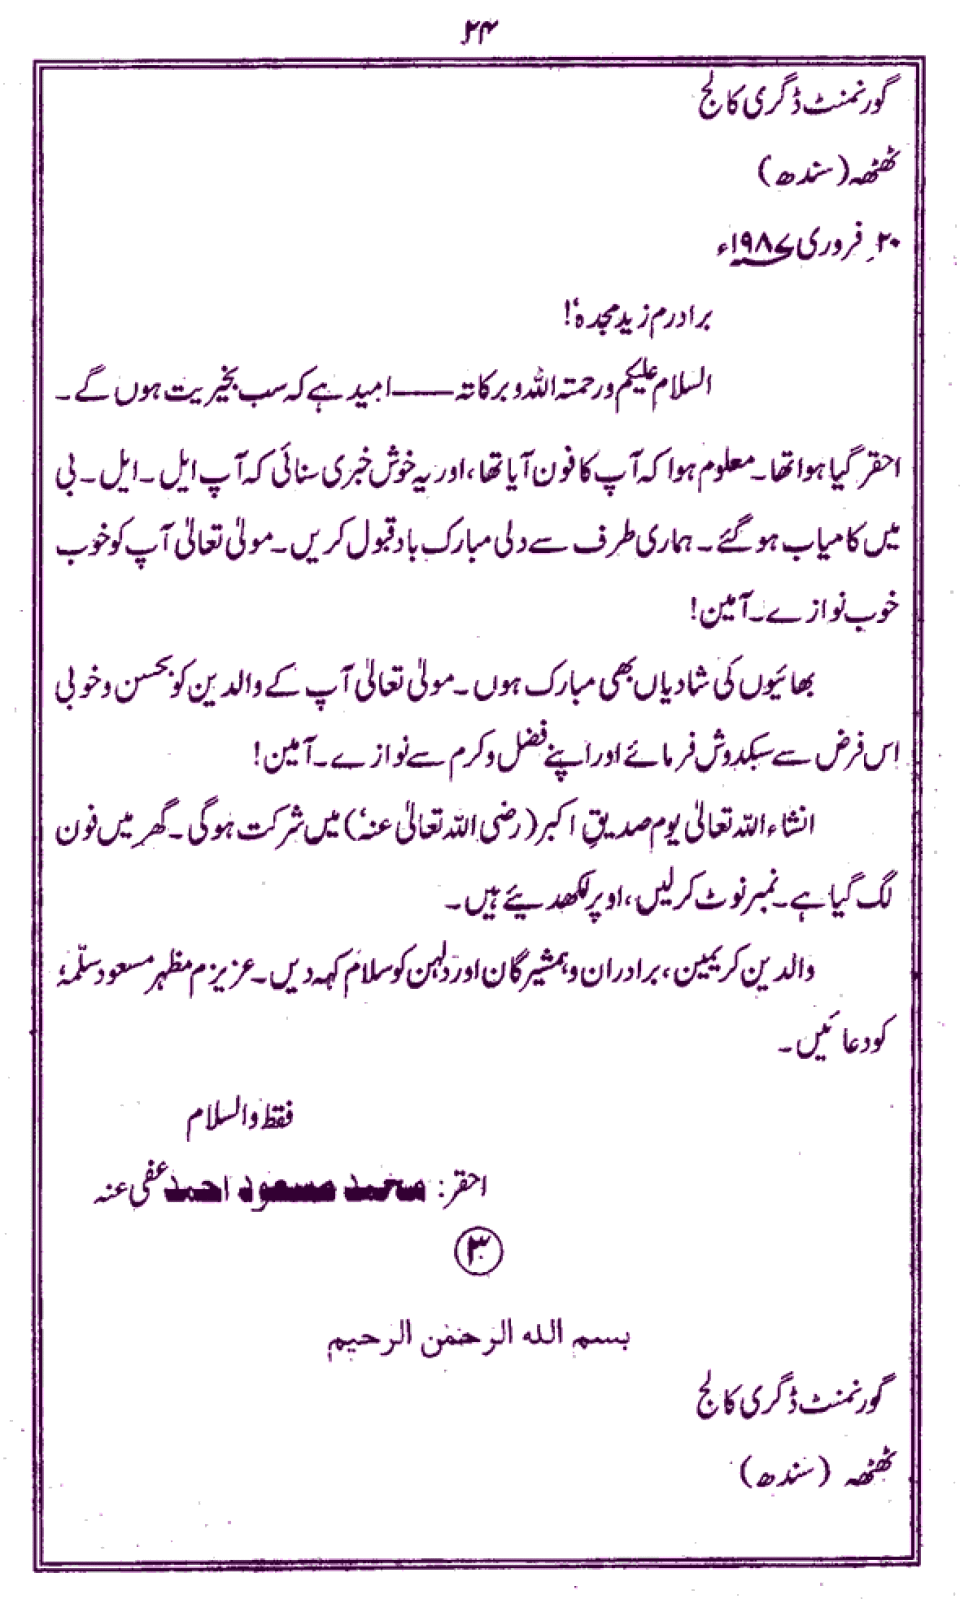 ۲۴
گورنمنٹ ڈگری کالج
ٹھٹھہ (سندھ)
۲۰؍ فروری ۱۹۸۷ء
برادرم زید مجدہٗ!
السلام علیکم ورحمتہ اللہ وبرکاتہ —— امید ہے کہ سب بخیریت ہوں گے۔
احقر گیا ہوا تھا۔ معلوم ہوا کہ آپ کا فون آیا تھا، اور یہ خوش خبری سنائی کہ آپ ایل۔ ایل۔ بی
میں کامیاب ہو گئے۔ ہماری طرف سے دلی مبارک باد قبول کریں۔ مولیٰ تعالیٰ آپ کو خوب
خوب نوازے۔ آمین!
بھائیوں کی شادیاں بھی مبارک ہوں۔ مولیٰ تعالیٰ آپ کے والدین کو بحسن و خوبی
اس فرض سے سبکدوش فرمائے اور اپنے فضل و کرم سے نوازے۔ آمین!
انشاء اللہ تعالیٰ یوم صدیقِ اکبر (رضی اللہ تعالیٰ عنہٗ) میں شرکت ہوگی۔ گھر میں فون
لگ گیا ہے۔ نمبر نوٹ کرلیں، اوپر لکھدیئے ہیں۔
والدین کریمین، برادران و ہمشیرگان اور دلہن کو سلام کہہ دیں۔ عزیزم مظہر مسعود سلّمہٗ
کو دعائیں۔
فقط والسلام
احقر: محمد مسعود احمد عفی عنہ
۳
بسم الله الرحمٰن الرحیم
گورنمنٹ ڈگری کالج
ٹھٹھہ (سندھ)